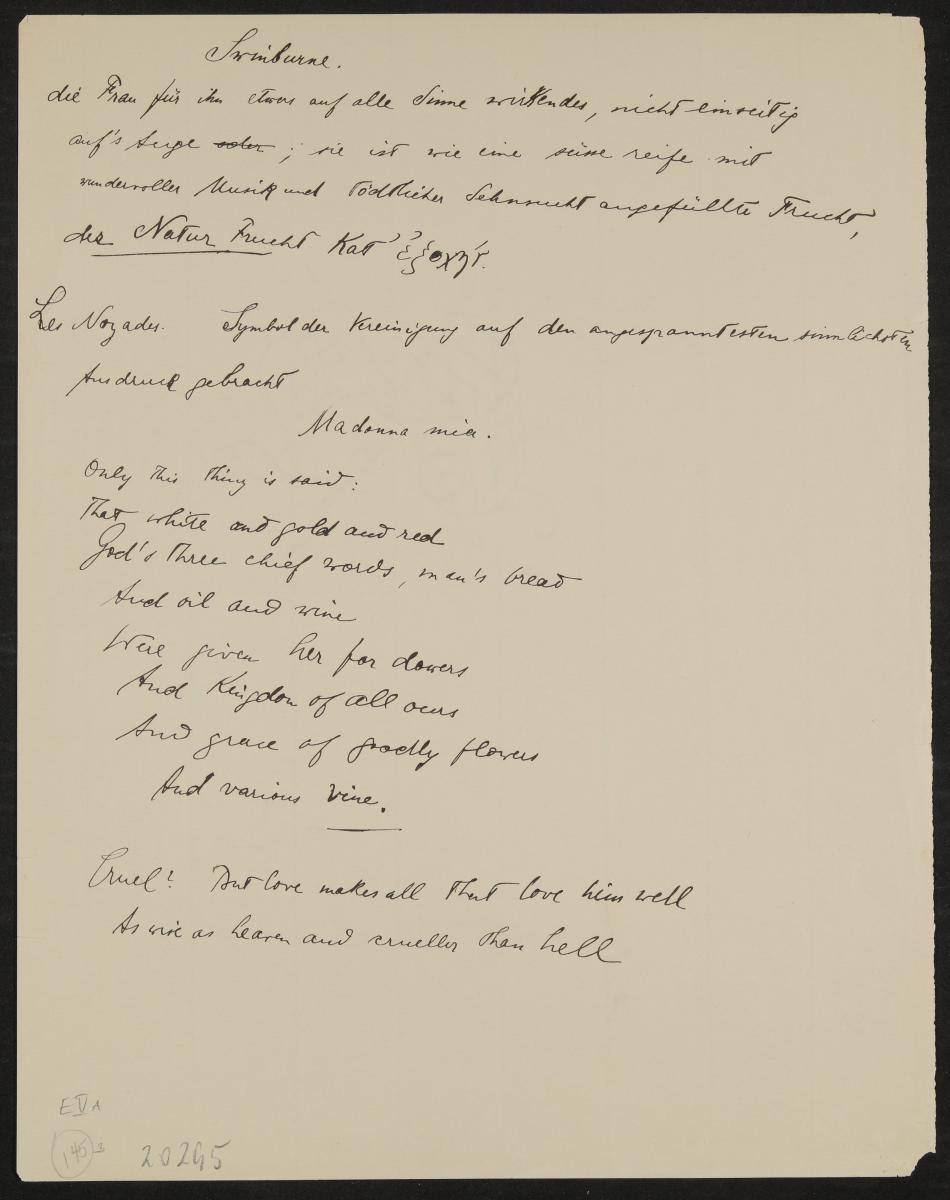 Swinburne.
die Frau für ihn etwas auf alle Sinne wirkendes, nicht einseitig
auf's Auge ; sie ist wie eine süsse reife mit
wundervoller Musik und tödtlicher Sehnsucht angefüllte Frucht,
der Natur Frucht Kat' ἐξοχήν.
Les Noyades. Symbol der Vereinigung auf den angespanntesten sinnlichsten
Ausdruck gebracht
Madonna mia.
Only this thing is said:
That white and gold and red
God's three chief words, man's bread
And oil and wine
Were given her for dowers
And Kingdom of all ours
And grace of goodly flowers
And various vine.
Cruel? But love makes all that love him well
As wise as heaven and crueller than hell
E V A
145
20245